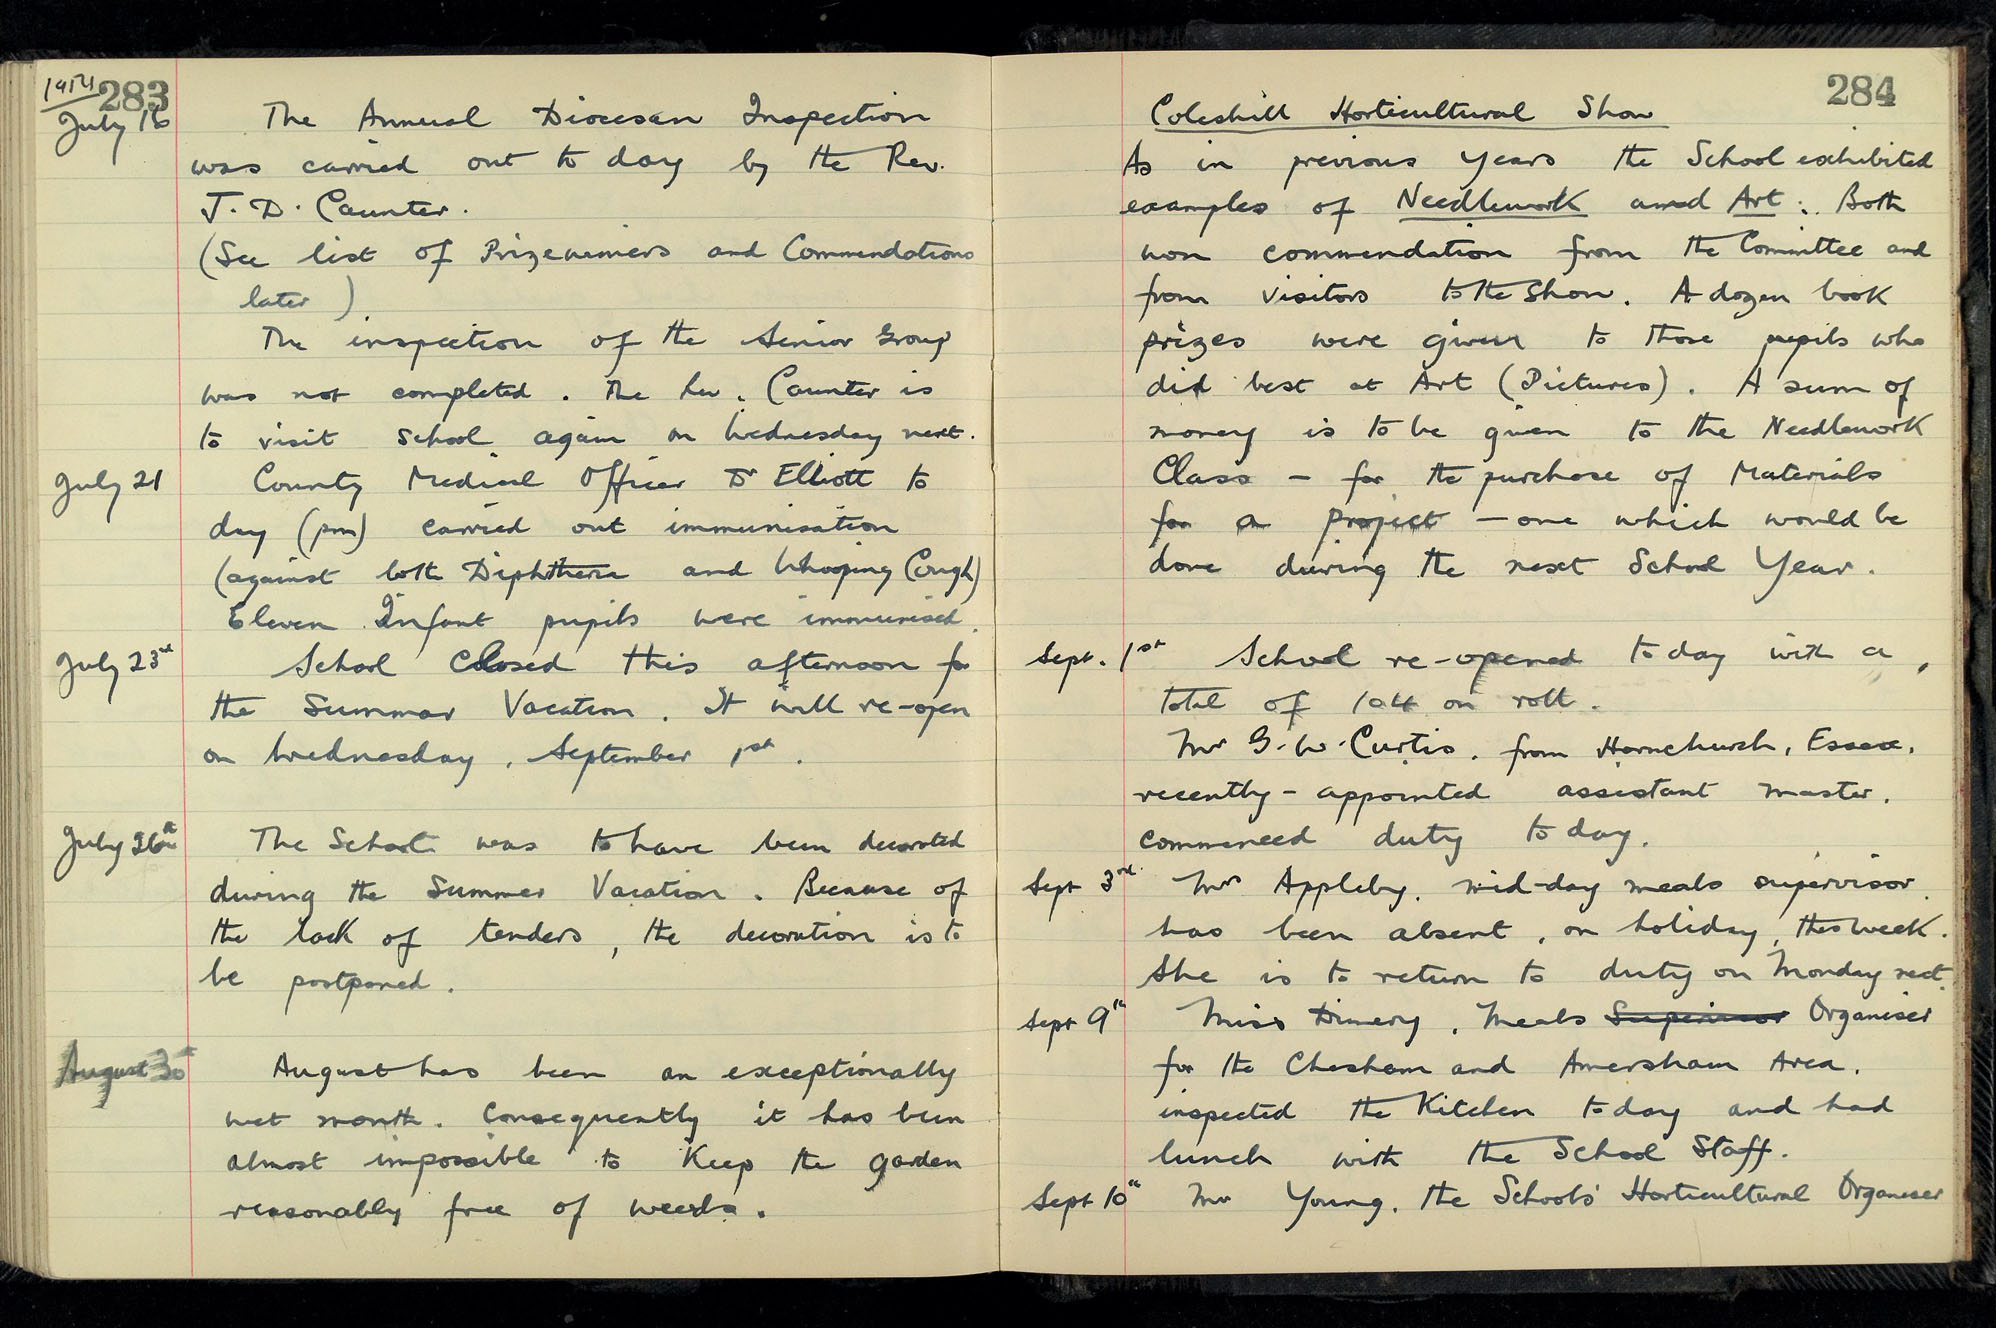 283
July 16 The Annual Diocesan Inspection
was carried out to day by the Rev.
J. D. Caunter.
(See list of Prizewinners and Commendations
later)
The inspection of the Senior Group
was not completed. The Rev. Caunter is
to visit School again on Wednesday next.
July 21 County Medical Officer Dr Elliott to
day (pm) carried out immunisation
(against both Diphtheria and Whooping Cough)
Eleven Infant pupils were immunised.
July 23rd School closed this afternoon for
the Summer Vacation. It will re-open
on Wednesday, September 1st.
July 26th The School was to have been decorated
during the Summer Vacation. Because of
the lack of tenders, the decoration is to
be postponed.
August 30th August has been an exceptionally
wet month. Consequently it has been
almost impossible to keep the garden
reasonably free of weeds.
284
Coleshill Horticultural Show
As in previous years the School exhibited
examples of Needlework and Art. Both
won commendation from the Committee and
from visitors to the Show. A dozen book
prizes were given to those pupils who
did best at Art (Pictures). A sum of
money is to be given to the Needlework
Class - for the purchase of Materials
for a project - one which would be
done during the next School Year.
Sept. 1st School re-opened today with a
total of 104 on roll.
Mr G. W. Curtis, from Hornchurch, Essex,
recently-appointed assistant master,
commenced duty to day.
Sept 3rd Mrs Appleby, mid-day meals supervisor
has been absent, on holiday, this week.
She is to return to duty on Monday next.
Sept 9th Miss Dimery, Meals Supervisor Organiser
for the Chesham and Amersham Area,
inspected the Kitchen today and had
lunch with the School Staff.
Sept 10th Mr Young, the Schools' Horticultural Organiser